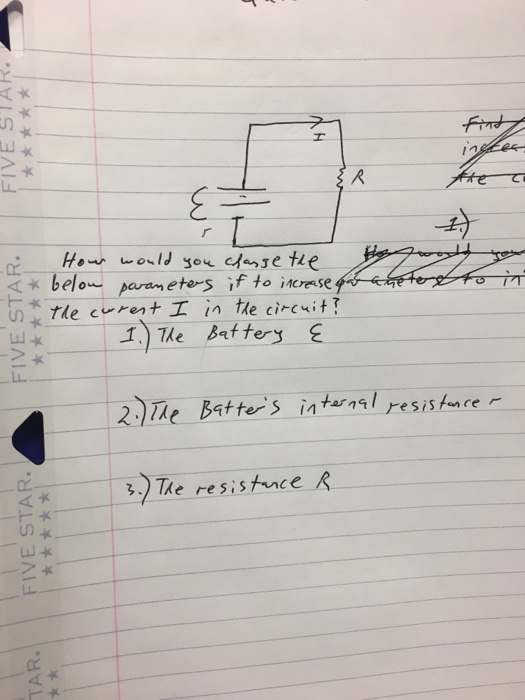 I
R
ε
r
How would you change the
below parameters if to increase
the current I in the circuit?
1.) The Battery ε
2.) The Batter's internal resistance r
3.) The resistance R
Find
the
1.)
How would you
to in
FIVE STAR.
FIVE STAR.
FIVE STAR.
TAR.